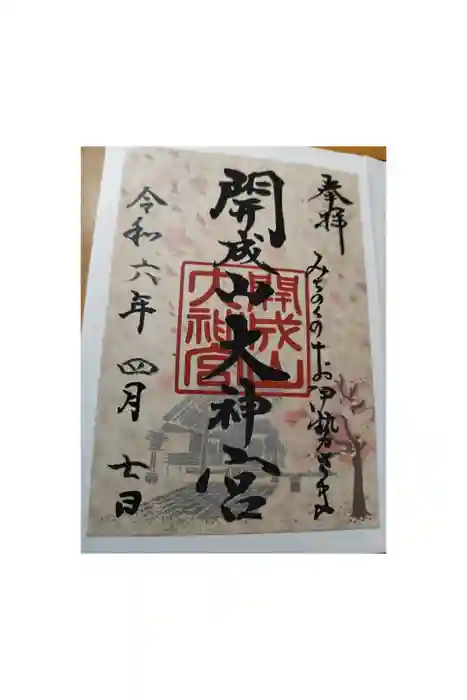 奉拝
みちのくのお伊勢さま
開成山大神宮
開成山
大神宮
令和六年四月十一日